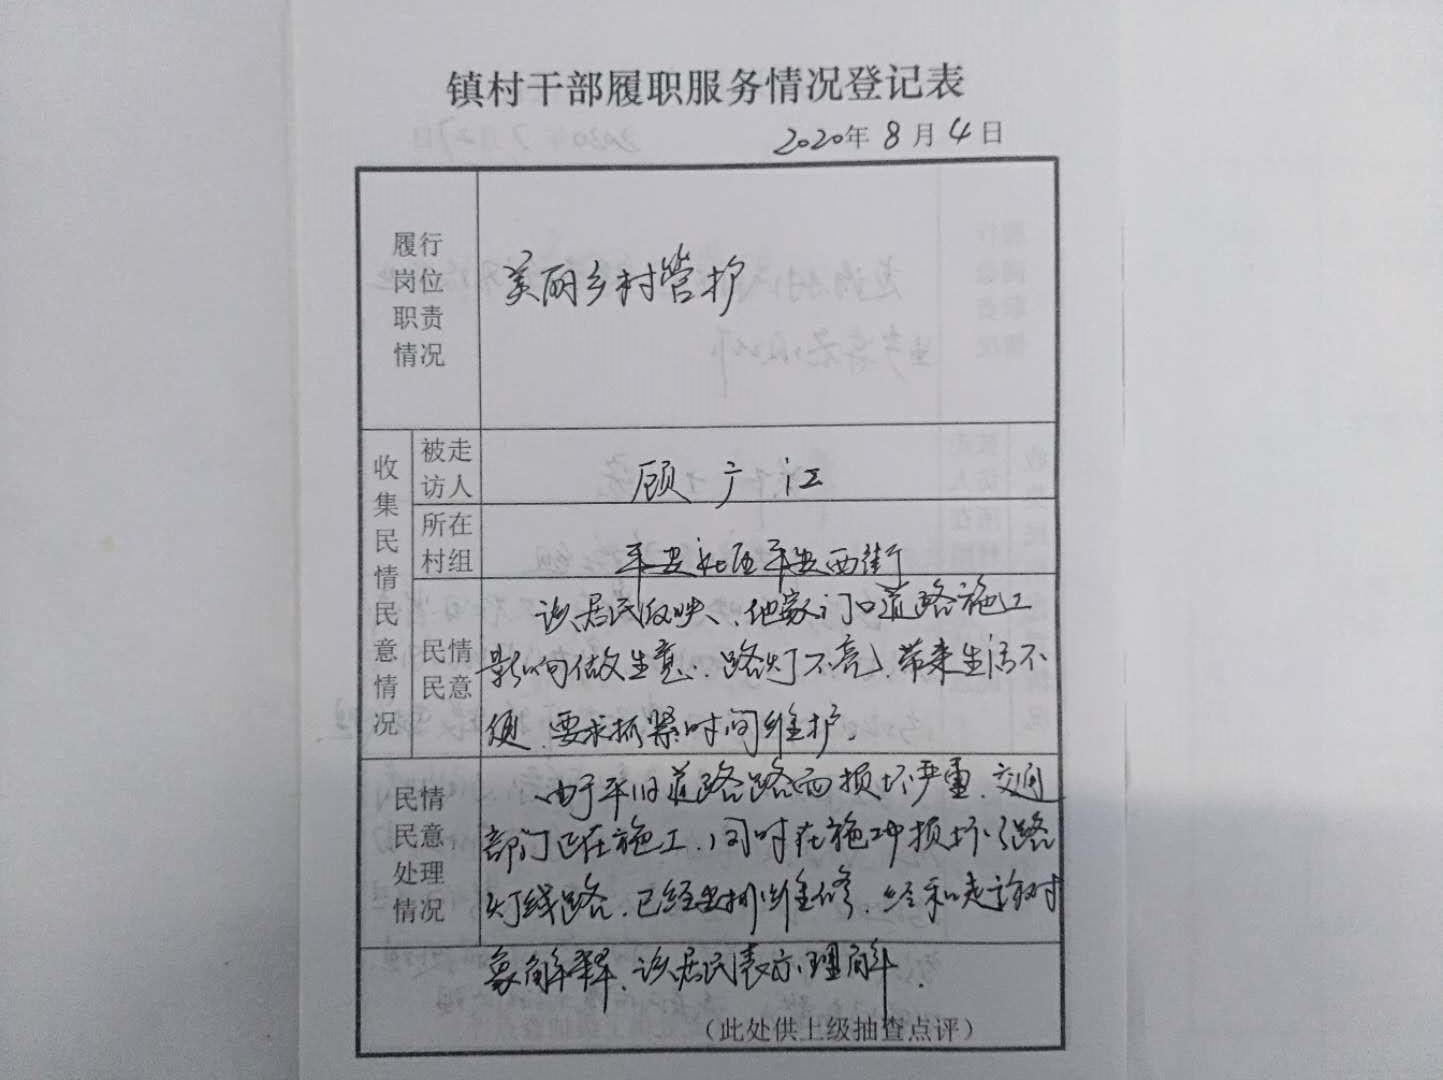 镇村干部履职服务情况登记表
2020年8月4日
履行
岗位
职责
情况
美丽乡村管护
收集民情民意情况
被走
访人
顾广江
所在
村组
平安社区平安西街
民情
民意
该居民反映、他家门口道路施工
影响做生意、路灯不亮、带来生活不
便、要求抓紧时间维护。
民情
民意
处理
情况
由于平旧道路路面损坏严重、交通
部门正在施工、同时在施工中损坏了路
灯线路、已经安排维修、经和走访对
象解释、该居民表示理解.
（此处供上级抽查点评）